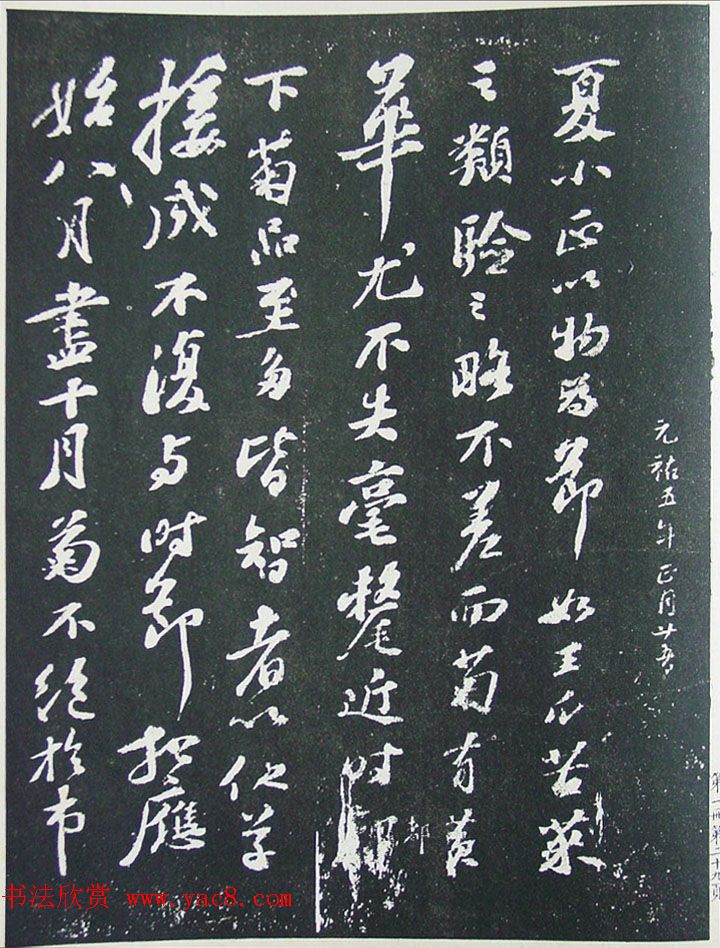 元祐五年正月廿五日
夏小正以物為節如王瓜苦菜
之類驗之略不差而菊有黃
華尤不失毫氂近時都
下菊品至多皆智者以他草
接成不復与時節相應
始八月盡十月菊不絕於市
书法欣赏 www.yac8.com